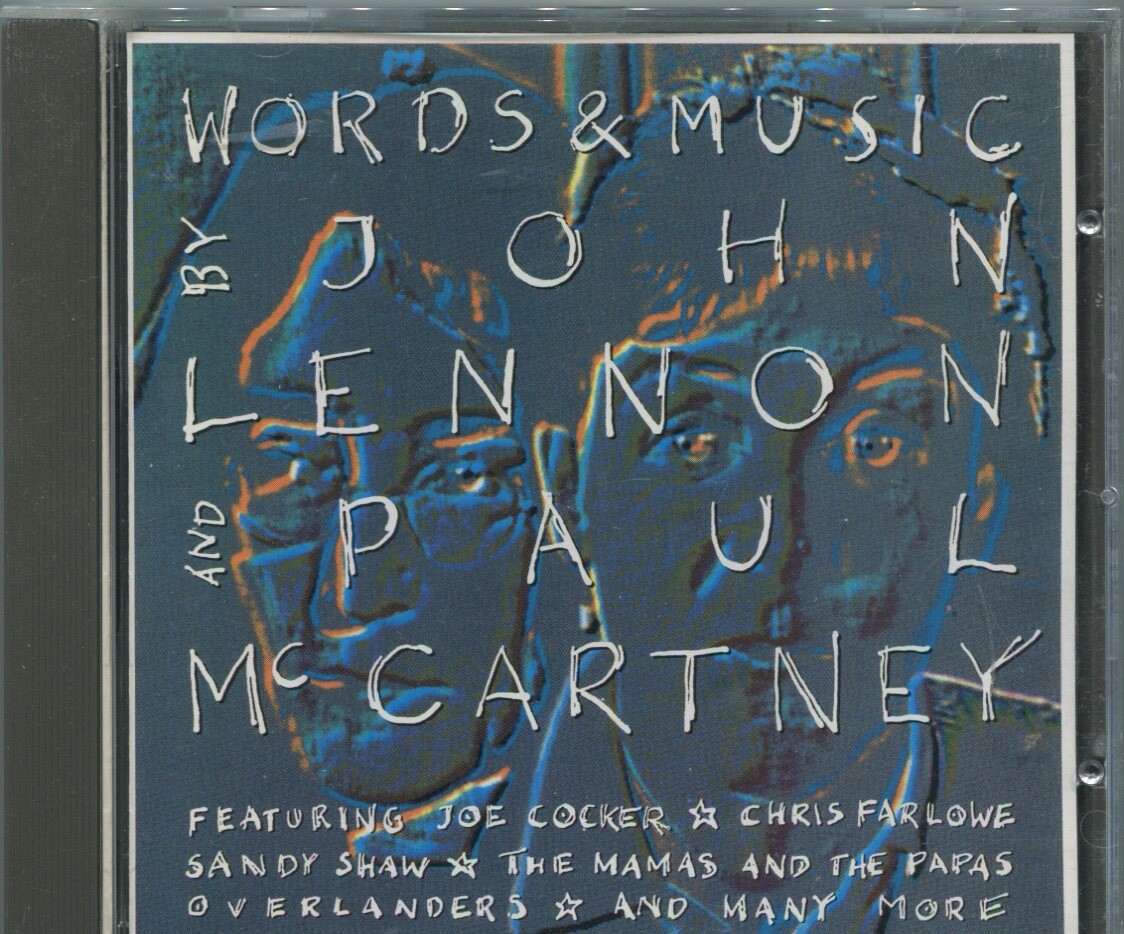 WORDS & MUSIC
BY JOHN
LENNON
AND PAUL
McCARTNEY
FEATURING JOE COCKER ☆ CHRIS FARLOWE
SANDY SHAW ☆ THE MAMAS AND THE PAPAS
OVERLANDERS ☆ AND MANY MORE